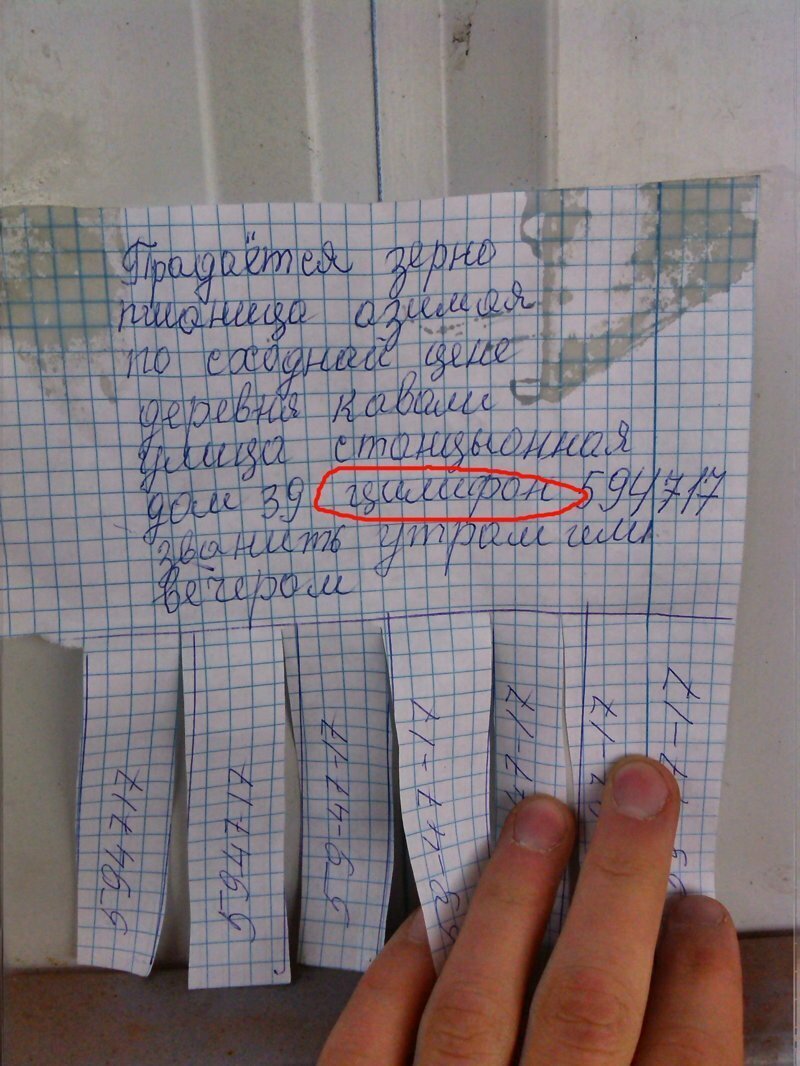 Прадаётся зерно
пшоница озимая
по сходнай цене
деревня Кавали
улица станцыонная
дом 39 цилифон 594717
званить утрам или
вечером
594717
594717
59-47-17
59-47-17
47-17
-17
7-17